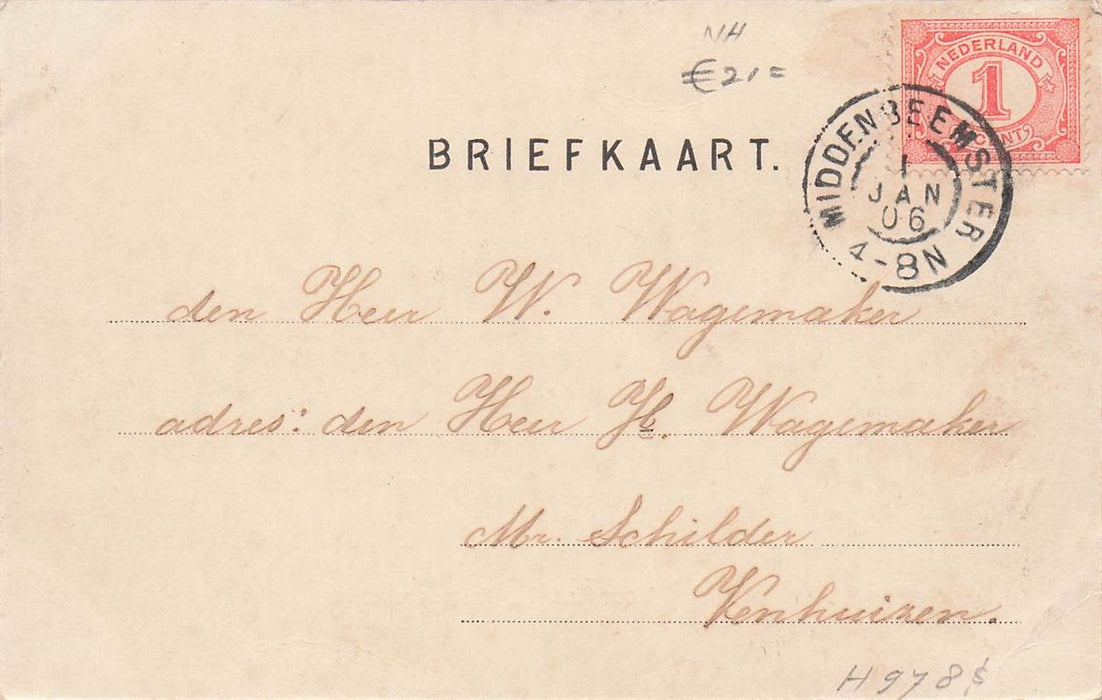 NH
€ 21=
NEDERLAND
1
CENT
BRIEFKAART.
MIDDENBEEMSTER
1
JAN
06
4-8N
den Heer W. Wagemaker
adres: den Heer H. Wagemaker
Mr. Schilder
Venhuizen.
H 978